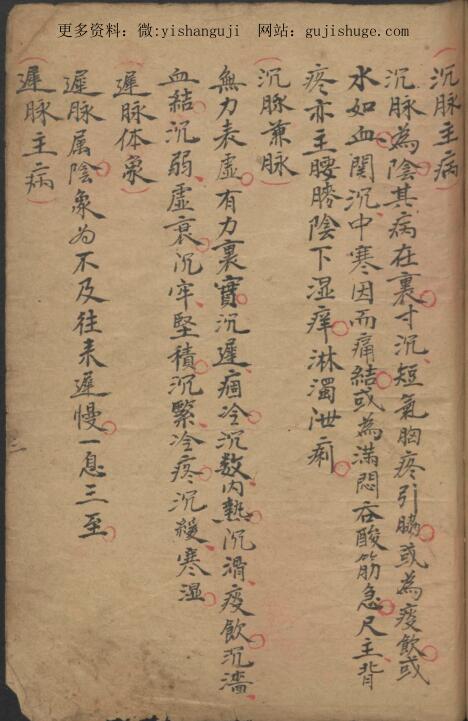 更多资料：微:yishanguji 网站：gujishuge.com
沉脉主病
沉脉為陰其病在裏寸沉短氣胸疼引脇或為痰飲或
水如血関沉中寒因而痛結或為滿悶吞酸筋急尺主背
疼亦主腰膝陰下湿痒淋濁泄痢
沉脉兼脉
無力表虛有力裏實沉遲痼冷沉数内熱沉滑痰飲沉濇
血結沉弱虛衰沉牢堅積沉緊冷疼沉緩寒湿
遲脉体象
遲脉属陰象为不及往来遲慢一息三至
遲脉主病